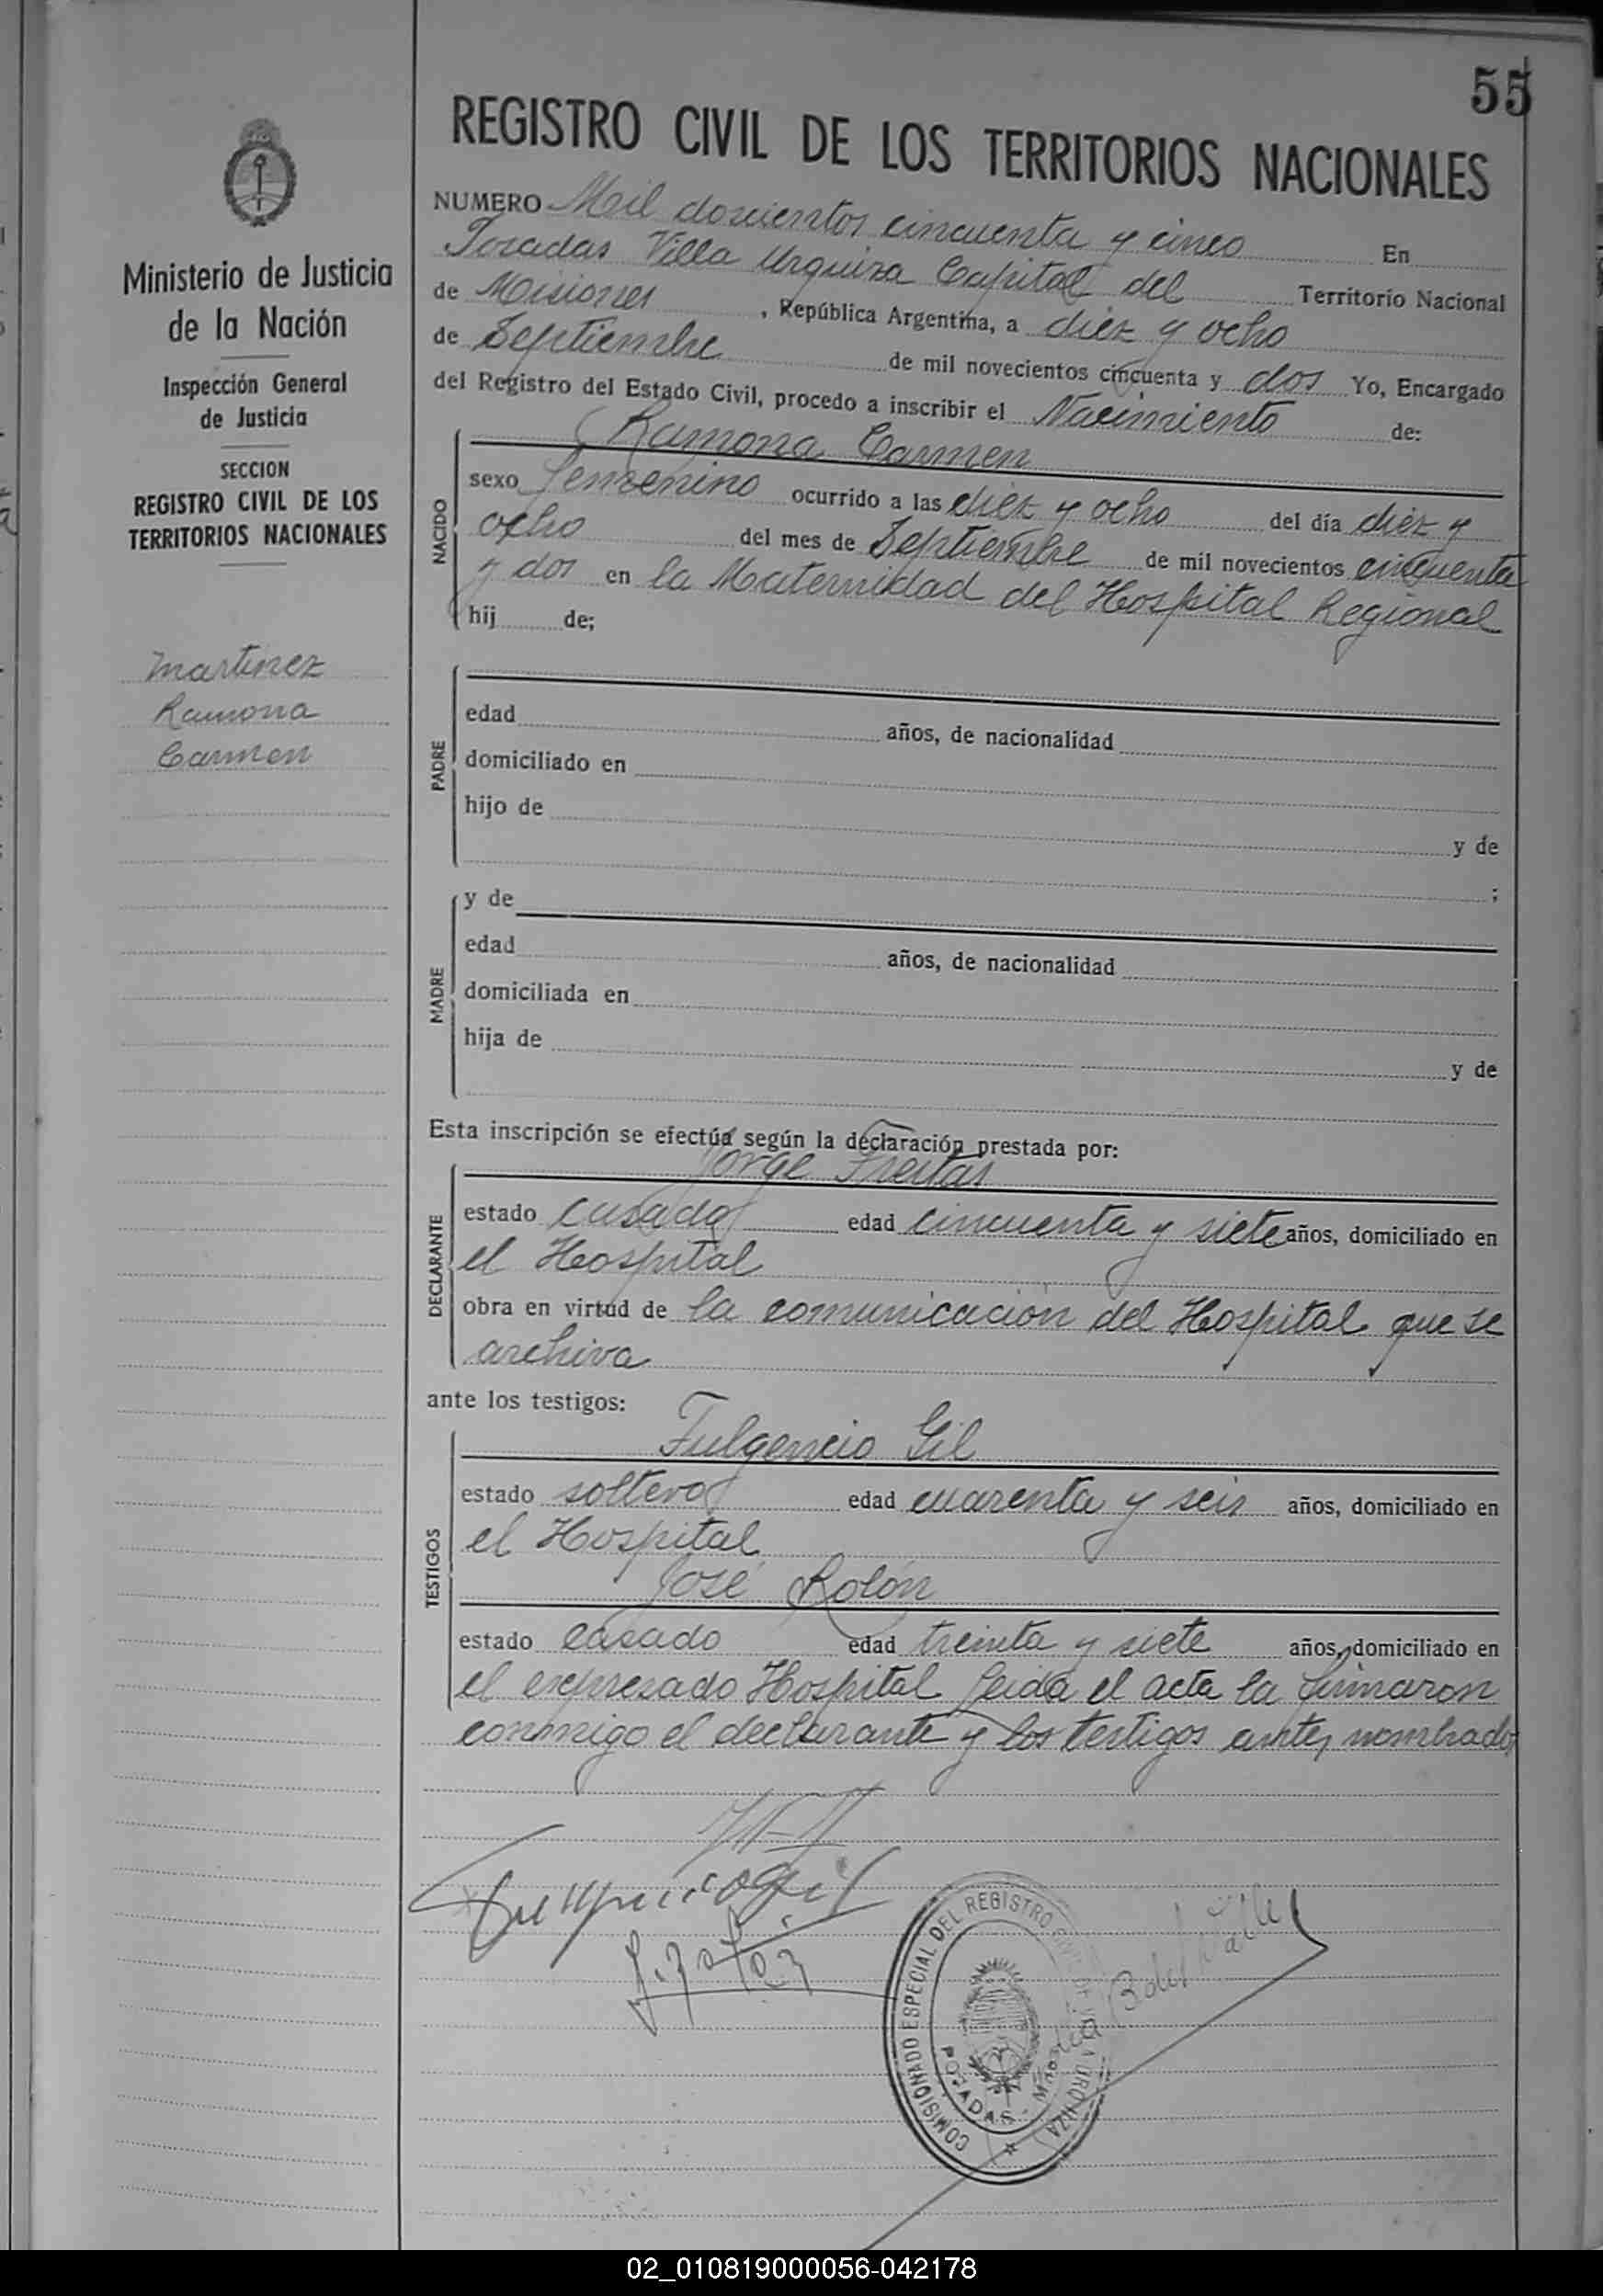 55
REGISTRO CIVIL DE LOS TERRITORIOS NACIONALES
Ministerio de Justicia
de la Nación
Inspección General
de Justicia
SECCION
REGISTRO CIVIL DE LOS
TERRITORIOS NACIONALES
Martinez
Ramona
Carmen
NUMERO Mil doscientos cincuenta y cinco En
Posadas Villa Urquiza Capital del Territorio Nacional
de Misiones, República Argentina, a diez y ocho
de Septiembre de mil novecientos cincuenta y dos Yo, Encargado
del Registro del Estado Civil, procedo a inscribir el Nacimiento de:
NACIDO
Ramona Carmen
sexo femenino ocurrido a las diez y ocho del día diez y
ocho del mes de Septiembre de mil novecientos cincuenta
y dos en la Maternidad del Hospital Regional
hij de;
PADRE
edad años, de nacionalidad
domiciliado en
hijo de y de
;
MADRE
y de
edad años, de nacionalidad
domiciliada en
hija de y de
Esta inscripción se efectúa según la declaración prestada por:
DECLARANTE
Jorge Freitas
estado casado edad cincuenta y siete años, domiciliado en
el Hospital
obra en virtud de la comunicación del Hospital que se
archiva
ante los testigos:
TESTIGOS
Fulgencio Gil
estado soltero edad cuarenta y seis años, domiciliado en
el Hospital
José Rolón
estado casado edad treinta y siete años, domiciliado en
el expresado Hospital Leida el acta la firmaron
conmigo el declarante y los testigos antes nombrados
COMISIONADO ESPECIAL DEL REGISTRO CIVIL VILLA URQUIZA
POSADAS - Mnes
02_010819000056-042178